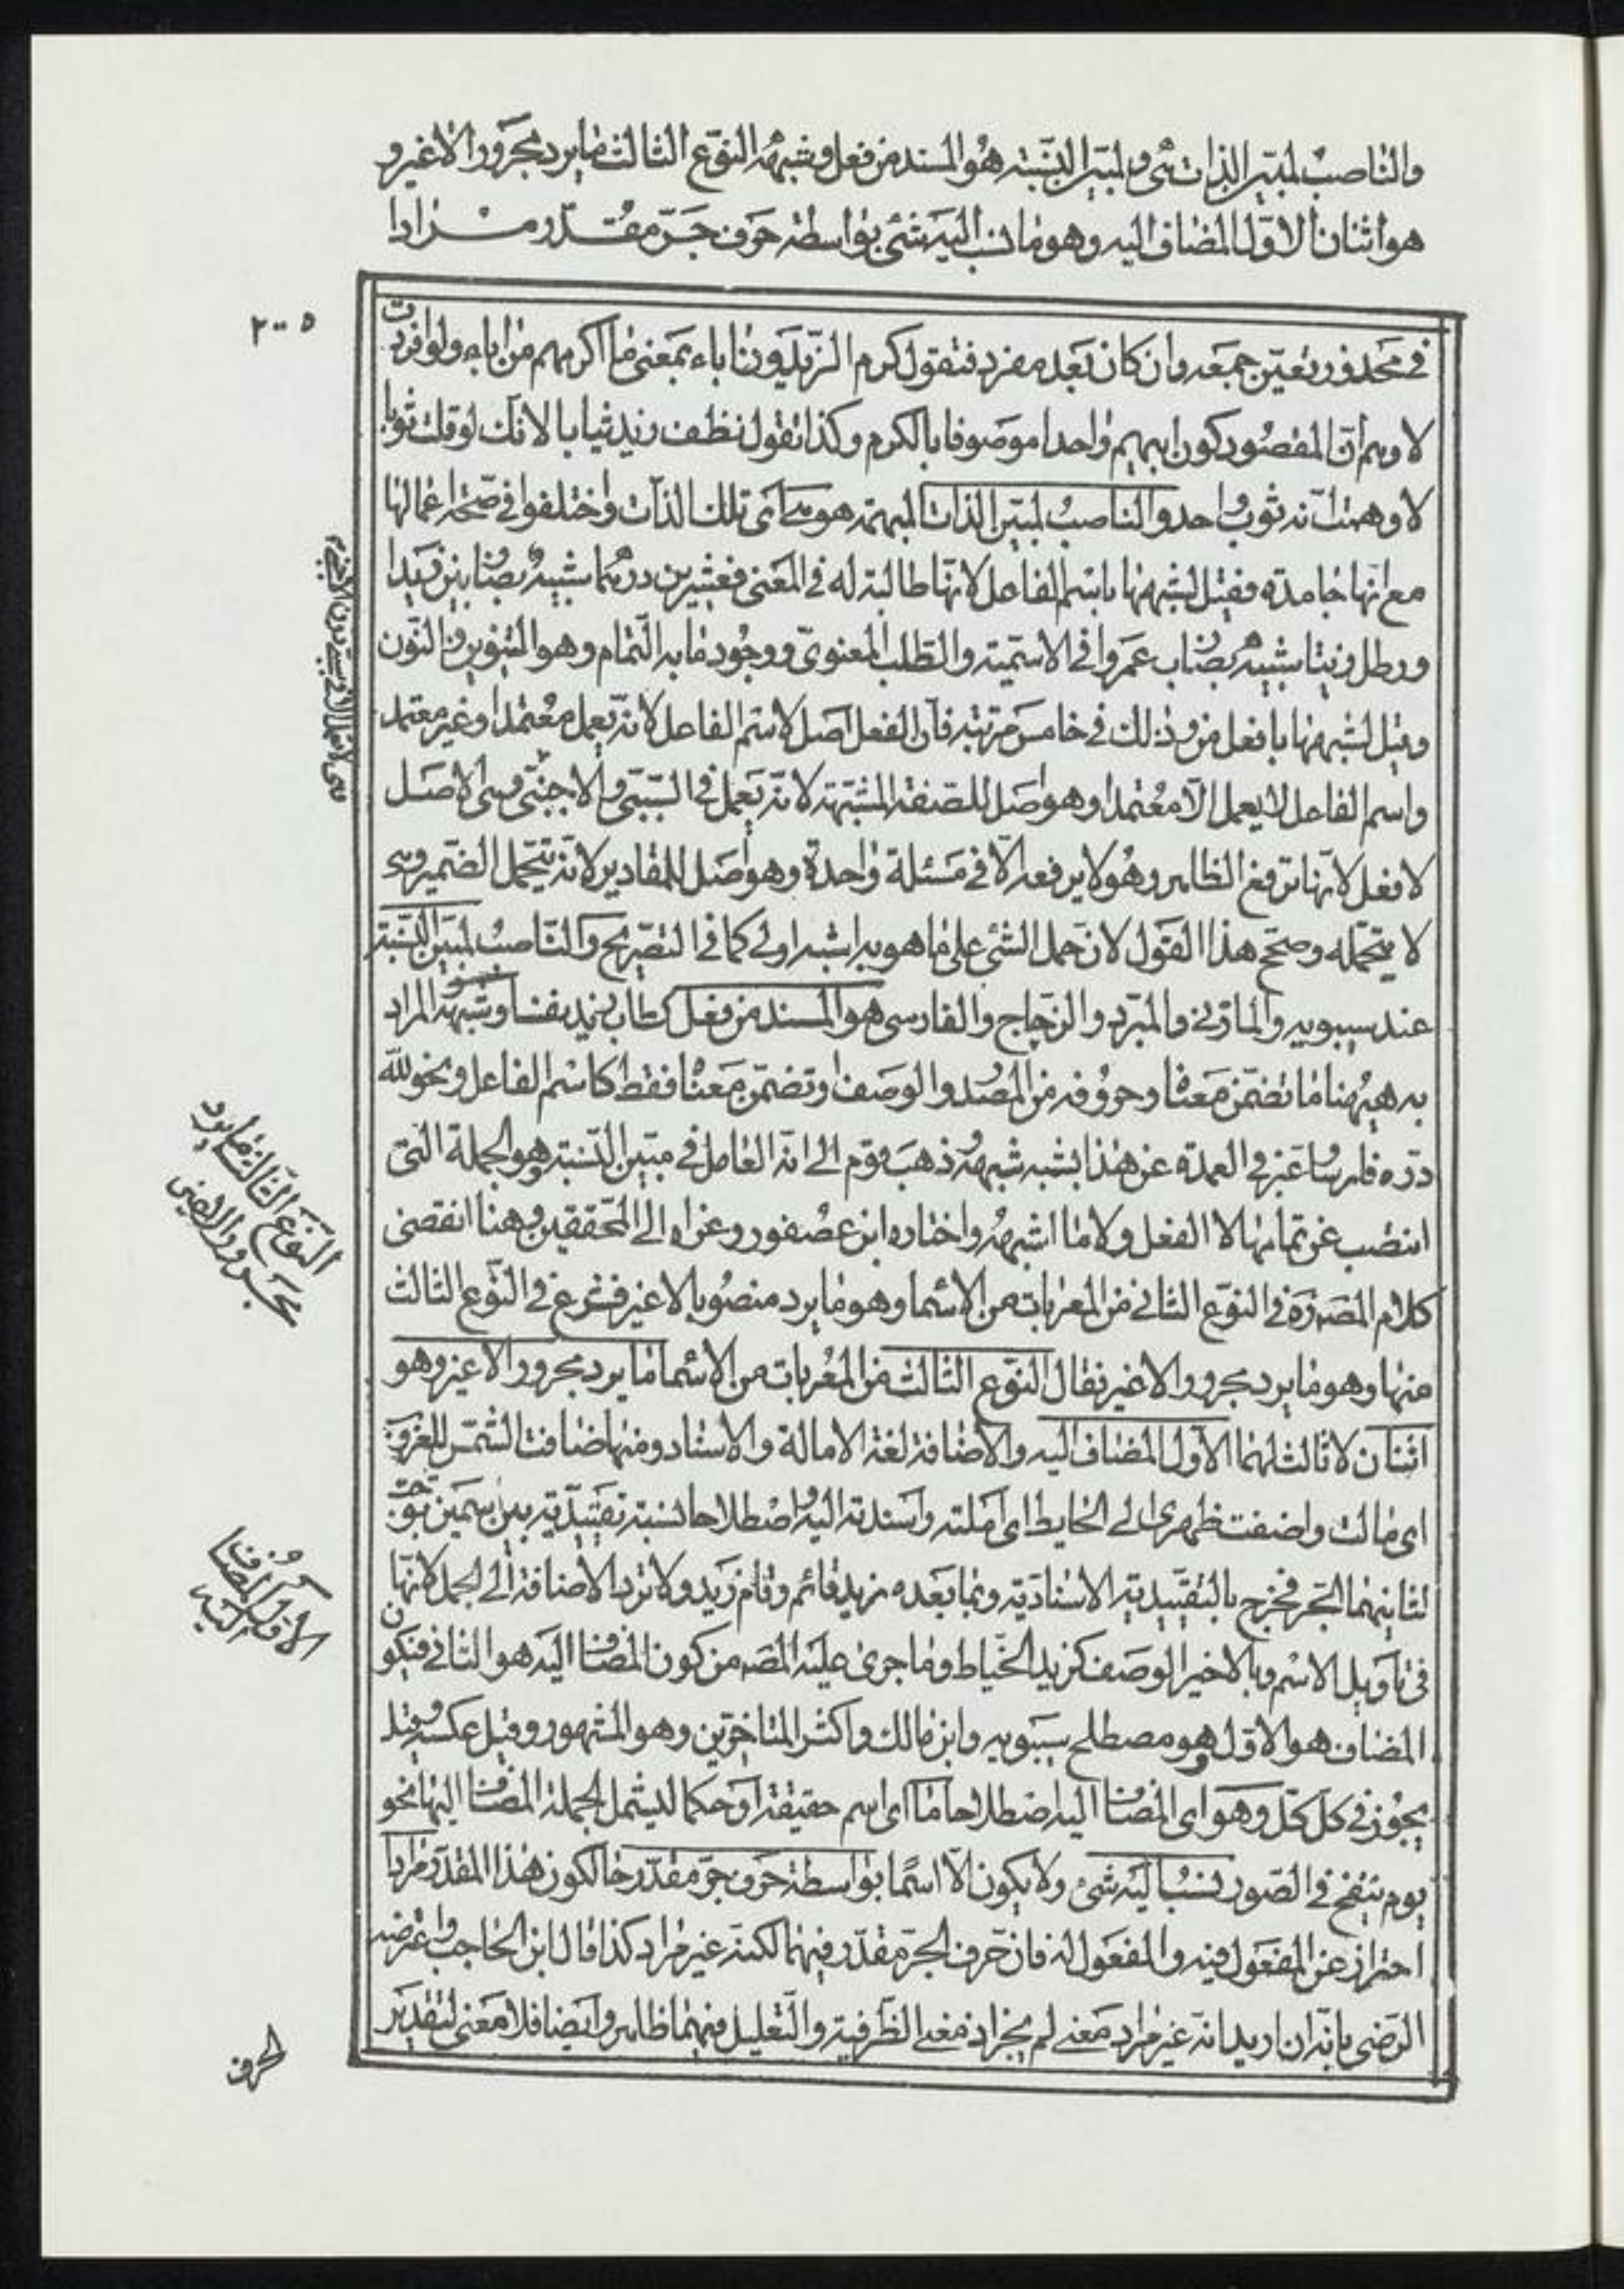 والناصب لمبيّن الذات هى ولمبيّن النّسبة هو المسند من فعل وشبهه النّوع الثالث ما يرد مجرورا لا غير و
هو اثنان الاوّل المضاف اليه وهو ما نسب اليه شئ بواسطة حرف جرّ مقدّر مرادا
٢٠٥
فى محذور يعيّن جمعه وان كان بعد مفرد فتقول كرم الزّيدون اباء بمعنى ما اكرمهم من اباء ولو افردت
لاوهم انّ المقصود كون ابيهم واحدا موصوفا بالكرم وكذا تقول نظف زيد ثيابا لانّك لو قلت ثوبا
لاوهمت انّه ثوب واحد والناصب لمبيّن الذات المبهمة هى اى تلك الذات واختلفوا فى صحّة اعمالها
مع انّها جامدة فقيل لشبهها باسم الفاعل لانّها طالبة له فى المعنى فعشرين درهما شبيه بضاربين زيدا
ورطل زيتا شبيه بضارب عمروا فى الاسميّة والطّلب المعنوىّ ووجود ما به التّمام وهو التنوين والنّون
وقيل لشبهها بافعل من وذلك فى خامس مرتبة فانّ الفعل اصل لاسم الفاعل لانّه يعمل معتمدا وغير معتمد
واسم الفاعل لا يعمل الّا معتمدا وهو اصل للصّفة المشبّهة لانّه يعمل فى السّببىّ والاجنبىّ وهى الاصل
لافعل لانّها ترفع الظاهر وهو لا يرفعه الّا فى مسئلة واحدة وهو اصل للمقادير لانّه يتحمّل الضّمير وهى
لا يتحمّله وصحّح هذا القول لانّ حمل الشئ على ما هو به اشبه اولى كما فى التصريح والنّاصب لمبيّن النّسبة
عند سيبويه والمازنى والمبرّد والزّجاج والفارسى هو المسند من فعل كطاب زيد نفسا وشبهه المراد
به هيهنا ما تضمّن معناه وحروفه من المصدر والوصف او تضمّن معناه فقط كاسم الفاعل ونحو لله
درّه فارسا عبّر فى العمدة عن هذا بشبه شبهه وذهب قوم الى انّ العامل فى مبيّن النّسبة هو الجملة التى
انتصب عن تمامها لا الفعل ولا ما اشبهه واختاره ابن عصفور وعزاه الى المحققين وهنا انقضى
كلام المصـ ره فى النوع الثانى من المعربات من الاسما وهو ما يرد منصوبا لا غير فشرع فى النّوع الثالث
منها وهو ما يرد مجرورا لا غير فقال النّوع الثالث من المعربات من الاسما ما يرد مجرورا لا غير وهو
اثنان لا ثالث لهما الاوّل المضاف اليه والاضافة لغة الامالة والاسناد ومنها ضافت الشّمس للغروب
اى مالت واضفت ظهرى الى الحايط اى املته واسندته اليه واصطلاحا نسبة تقييديّة بين اسمين توجب
لثانيهما الجرّ فخرج بالتقييدية الاسناديّة وبما بعده زيد قائم وقام زيد ولا ترد الاضافة الى الجمل لانّها
فى تاويل الاسم وبالاخير الوصف كزيد الخيّاط وما جرى عليه المصـ من كون المضاف اليه هو الثانى فيكون
المضاف هو الاوّل هو مصطلح سيبويه وابن مالك واكثر المتاخّرين وهو المشهور وقيل عكسه وقيل
يجوز فى كلّ كلّ وهو اى المضاف اليه اصطلاحا ما اى اسم حقيقة او حكما ليشمل الجملة المضاف اليها نحو
يوم ينفخ فى الصّور نسب اليه شئ ولا يكون الّا اسمًا بواسطة حرف جرّ مقدّر حال كون هذا المقدّر مرادا
احتراز عن المفعول فيه والمفعول له فانّ حرف الجرّ مقدّر فيهما لكنّه غير مراد كذا قال ابن الحاجب واعترضه
الرّضى بانّه ان اريد انّه غير مراد معنى لم يجز اذ معنى الظّرفية والتّعليل فيهما ظاهر وايضا فلا معنى لتقدير
النّوع الثالث ما يرد
مجرورا لا غير
الاوّل المضاف
اليه
الحرف